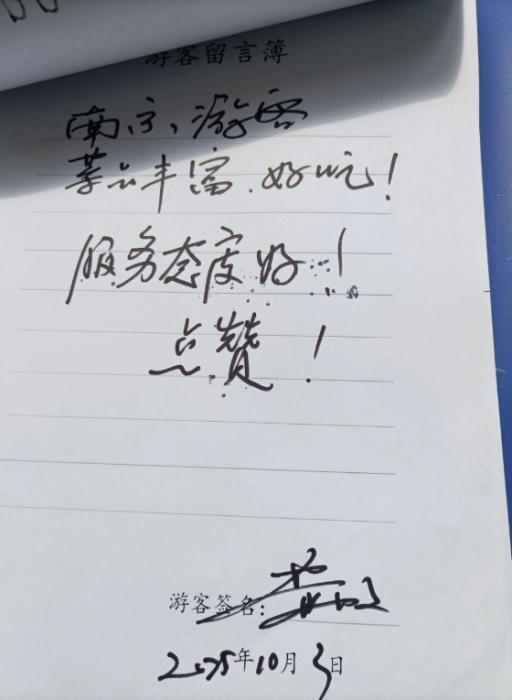 游客留言簿
南宁游客
菜品丰富.好吃！
服务态度好！
点赞！
游客签名：
2025年10月3日